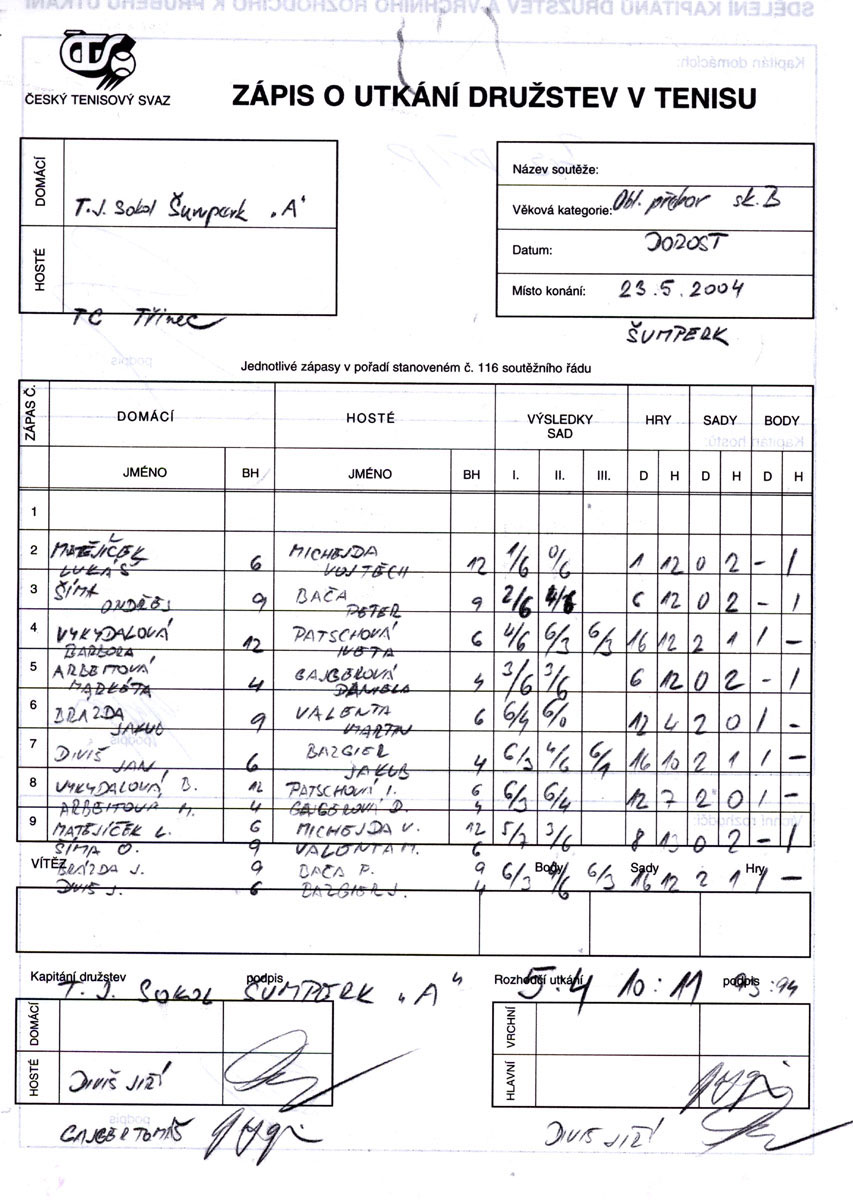 SDĚLENÍ KAPITÁNŮ DRUŽSTEV A VRCHNÍHO ROZHODČÍHO K PRŮBĚHU UTKÁNÍ
Kapitán domácích:
ČTS
ČESKÝ TENISOVÝ SVAZ
ZÁPIS O UTKÁNÍ DRUŽSTEV V TENISU
DOMÁCÍ
T.J. Sokol Šumperk „A“
HOSTÉ
TC Třinec
Název soutěže:
Věková kategorie: Obl. přebor sk. B
Datum: DOROST
Místo konání: 23.5.2004
ŠUMPERK
podpis
Jednotlivé zápasy v pořadí stanoveném č. 116 soutěžního řádu
ZÁPAS Č. DOMÁCÍ HOSTÉ VÝSLEDKY SAD HRY SADY BODY
Kapitán hostů:
JMÉNO BH JMÉNO BH I. II. III. D H D H D H
1
2 MATĚJÍČEK LUKÁŠ 6 MICHEJDA VOJTĚCH 12 1/6 0/6 1 12 0 2 - 1
3 ŠÍMA ONDŘEJ 9 BAČA PETER 9 2/6 4/6 6 12 0 2 - 1
4 VYKYDALOVÁ BARBORA 12 PATSCHOVÁ IVETA 6 4/6 6/3 6/3 16 12 2 1 1 -
5 ARBEITOVÁ MARKÉTA 4 GAJGEROVÁ DANIELA 4 3/6 3/6 6 12 0 2 - 1
6 BRÁZDA JAKUB 9 VALENTA MARTIN 6 6/4 6/0 12 4 2 0 1 -
7 DIVIŠ JAN 6 BAZGIER JAKUB 4 6/3 4/6 6/1 16 10 2 1 1 -
8 VYKYDALOVÁ B. 12 PATSCHOVÁ I. 6 6/3 6/4 12 7 2 0 1 -
ARBEITOVÁ M. 4 GAJGEROVÁ D. 4
9 MATĚJÍČEK L. 6 MICHEJDA V. 12 5/7 3/6 8 13 0 2 - 1
ŠÍMA O. 9 VALENTA M. 6
VÍTĚZ Body Sady Hry
BRÁZDA J. 9 BAČA P. 9 6/3 4/6 6/3 16 12 2 1 1 -
DIVIŠ J. 6 BAZGIER J. 4
Kapitáni družstev podpis Rozhodčí utkání podpis
T.J. SOKOL ŠUMPERK „A“ 5:4 10:11 93:94
DOMÁCÍ
VRCHNÍ
HOSTÉ DIVIŠ JIŘÍ
HLAVNÍ
GAJGER TOMÁŠ
DIVIŠ JIŘÍ
podpis